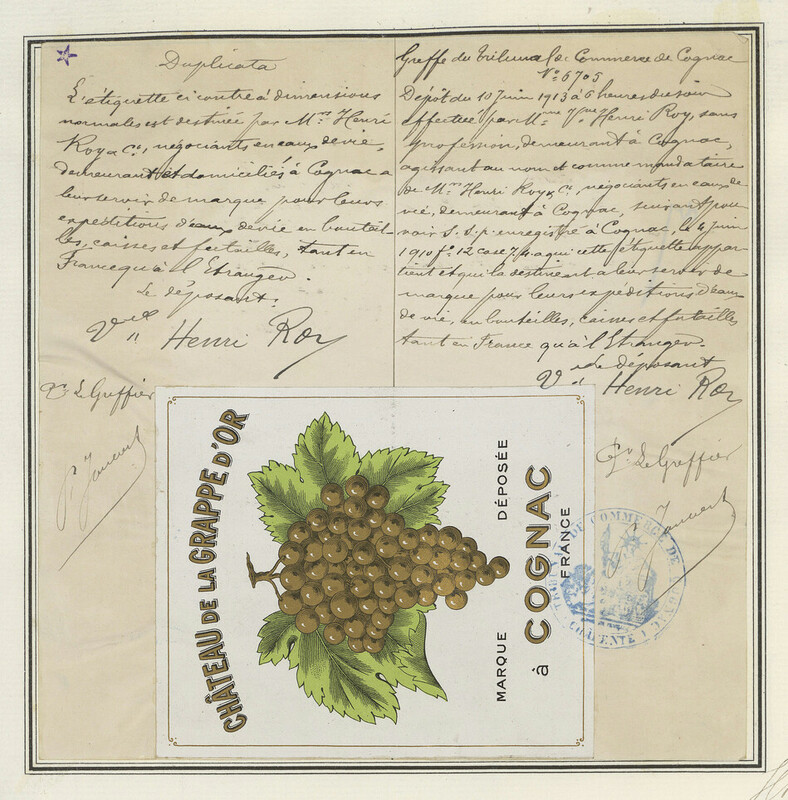 Duplicata
L'étiquette ci contre à dimensions
normales est destinée par Mrs Henri
Roy & Cie, négociants en eaux de vie,
demeurant et domiciliés à Cognac a
leur servir de marque pour leurs
expéditions d'eaux de vie en bouteil-
les, caisses et futailles, tant en
France qu'à l'Etranger.
Le déposant.
Henri Roy
Le Greffier
Greffe du Tribunal de Commerce de Cognac
No 6705
Dépôt du 10 Juin 1913 à 6 heures du soir
effectué par Mme Henri Roy, sans
profession, demeurant à Cognac,
agissant au nom et comme mandataire
de Mrs Henri Roy & Cie, négociants en eaux de
vie, demeurant à Cognac, suivant pou-
voir S. S. p. enregistré à Cognac, le 4 Juin
1910 fo 12 case 74 a qui cette étiquette appar-
tient et qui la destinent a leur servir de
marque pour leurs expéditions d'eaux
de vie, en bouteilles, caisses et futailles
tant en France qu'à l'Etranger.
déposant
Henri Roy
Le Greffier
CHÂTEAU DE LA GRAPPE D'OR
MARQUE DÉPOSÉE
à COGNAC
FRANCE
TRIBUNAL DU COMMERCE DE COGNAC
(CHARENTE)